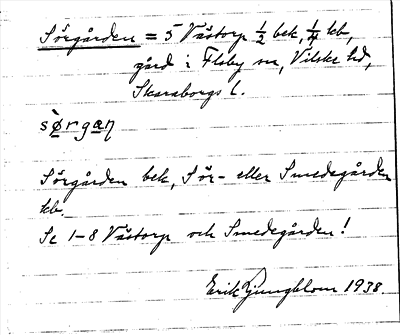 Sörgården = 5 Västorp ½ bek, ¼ kb,
gård i Floby sn, Vilske hd,
Skaraborgs l.
sø̀rgaɳ
Sörgården bek, Sör- eller Smedegården
kb.
Se 1-8 Västorp och Smedegården!
Erik Ljungblom 1938.